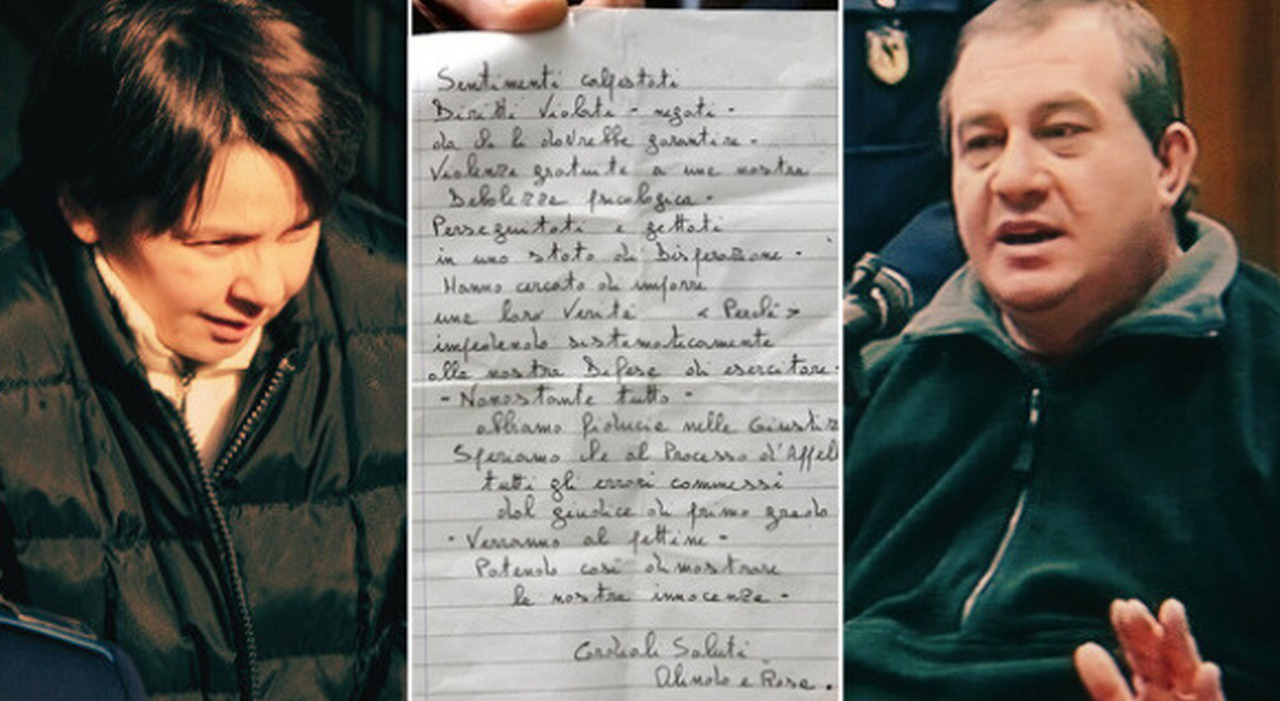 Sentimenti calpestati
Diritti Violati - negati -
da chi li dovrebbe garantire -
Violenze gratuite a una nostra
Debolezza psicologica -
Perseguitati e gettati
in uno stato di Disperazione -
Hanno cercato di imporre
una loro Verità « Perchè »
impedendo sistematicamente
alla nostra Difesa di esercitare -
- Nonostante tutto -
abbiamo fiducia nella Giustiz
Speriamo che al Processo d'Appel
tutti gli errori commessi
dal giudice di primo grado
- Verranno al pettine -
Potendo così dimostrare
la nostra innocenza -
Cordiali Saluti
Olindo e Rosa .